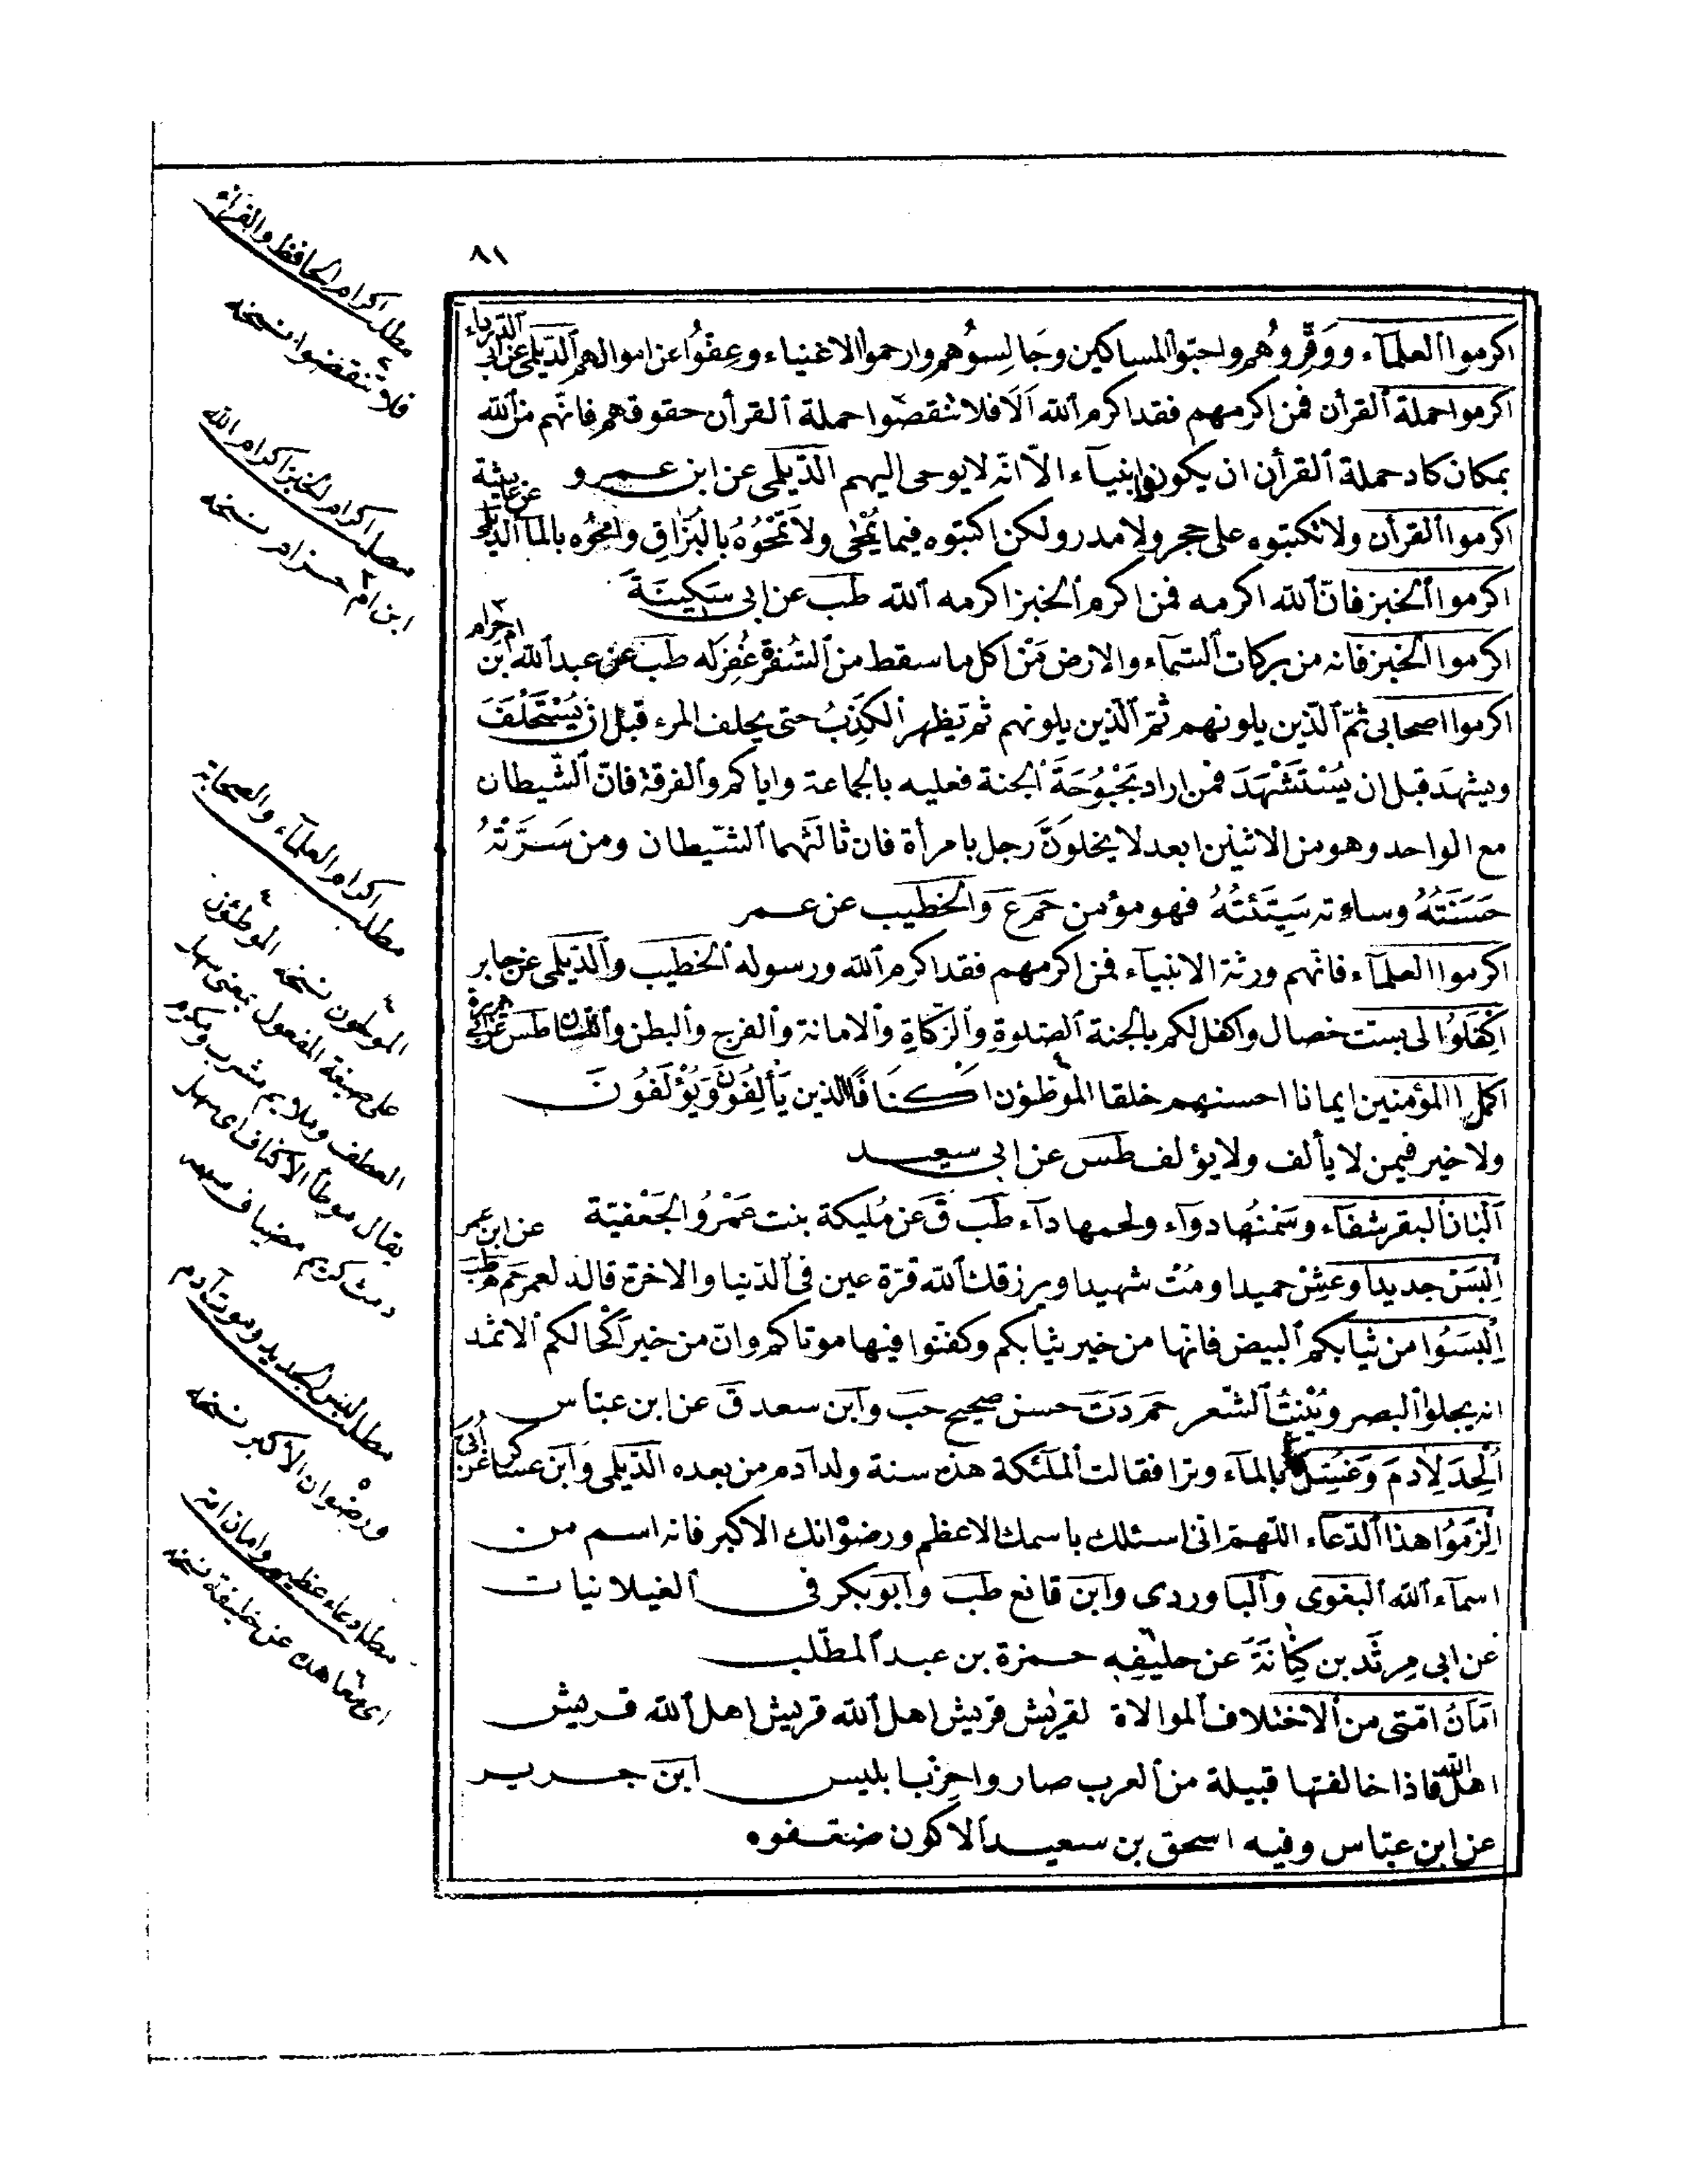 ٨١
اكرموا العلمآء ووقّروهم واحبّوا المساكين وجالسوهم وارحموا الاغنياء وعفّوا عن اموالهم الدّيلمى عن ابى الدّرداء
اكرموا حملة القرأن فمن اكرمهم فقد اكرم الله الا فلا تنقصوا حملة القرأن حقوقهم فانّهم من الله
بمكان كاد حملة القرأن ان يكونوا انبيآء الّا انّه لا يوحى اليهم الدّيلمى عن ابن عمرو
اكرموا القرأن ولا تكتبوه على حجر ولا مدر ولكن اكتبوه فيما يُمْحٰى ولا تَمْحُوهُ بالبُزَاقِ وامْحُوه بالمآ الديلمى عن عايشة
اكرموا الخبز فانّ الله اكرمه فمن اكرم الخبز اكرمه الله طب عن ابى سَكِينَة
اكرموا الخبز فانه من بركات السّمآء والارض مَن اكل ما سقط من السُفرة غُفِرَ له طب عن عبد الله ابن ام حرام
اكرموا اصحابى ثمّ الّذين يلونهم ثمّ الّذين يلونهم ثم يظهر الكَذِبُ حتى يحلف المرء قبل ان يُسْتَحْلَفَ
ويشهدَ قبل ان يُسْتَشْهَدَ فمن اراد بُحْبُوحَةَ الجنة فعليه بالجماعة واياكم والفرقة فانّ الشّيطان
مع الواحد وهو من الاثنين ابعد لا يخلونَّ رجل بامرأة فان ثالثهما الشّيطان ومن سَرَّتْهُ
حَسَنَتُهُ وساءته سَيِّئَتُهُ فهو مؤمن حم ع والخطيب عن عمر
اكرموا العلمآء فانّهم ورثة الانبيآء فمن اكرمهم فقد اكرم الله ورسوله الخطيب والدّيلمى عن جابر
اكْفَلُوا لى بست خصال واكفل لكم بالجنة الصّلوةِ والزّكاةِ والامانة والفرج والبطن واللسان طس عن ابى هريرة
اكمل المؤمنين ايمانا احسنهم خلقا الموطّؤن اكنافًا الذين يَألِفُونَ ويُؤْلَفُونَ
ولا خير فيمن لا يألف ولا يؤلف طس عن ابى سعيد
اَلْبَانُ البقر شفآء وسَمْنُها دوآء ولحمها دآء طب ق عن مُليكة بنت عَمْرُو الجَعْفيّة
اِلْبَسْ جديدا وعِشْ حميدا ومُتْ شهيدا ويرزقك الله قرّة عين فى الدّنيا والاخرة قاله لعمر حم ه طب عن ابن عمر
اِلْبَسُوا من ثيابكم البيض فانّها من خير ثيابكم وكفّنوا فيها موتاكم وانّ من خير اَكْحَالكم الاثمد
انه يجلوا البصر ويُنْبِتُ الشّعر حم د ت حسن صحيح حب وابن سعد ق عن ابن عبّاس
اُلْحِدَ لِآدمَ وغُسِّلَ بالمآء وترا فقالت الملئكة هذه سنة ولد آدم من بعده الدّيلمى وابن عساكر عن اُبَىّ
اِلْزَمُوا هذا الدّعاء اللّهمّ انى اسئلك باسمك الاعظم ورضوانك الاكبر فانه اسم من
اسمآء الله البغوى والباوردى وابن قانع طب وابو بكر فى الغيلانيات
عن ابى مِرثَد بن كِنَانَةَ عن حليفه حمزة بن عبد المطّلب
اَمَانُ امّتى من الاختلاف الموالاة لقريش قريش اهل الله قريش اهل الله قريش
اهل الله فاذا خالفتها قبيلة من العرب صاروا حِزْبا بليس ابن جرير
عن ابن عبّاس وفيه اسحق بن سعيد الاكون ضعّفوه
مطلب اكرام الحافظ والقرّاء
فلا تنقضوا نسخه
مطلب اكرام الخبز اكرام الله
ابن امّ حزام نسخه
مطلب اكرام العلمآء والصحابة
الموطون نسخه الموطئون
على صيغة المفعول بمعنى سهل
العطف وملايم مشرب ومكرم
يقال موطأ الاكناف اى سهل
دمث كريم مضياف
مطلب لبس الجديد وموت آدم
ورضوان الاكبر نسخه
مطلب دعاء عظيم وامان امة
عن خليفة نسخه